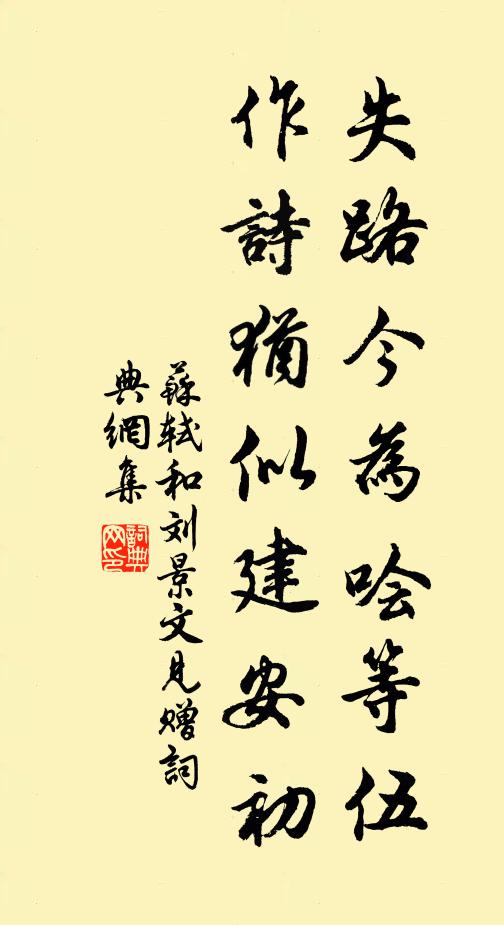 失路今為哙等伍
作詩猶似建安初
蘇軾和刘景文見贈詞
典網集
詞典
网印